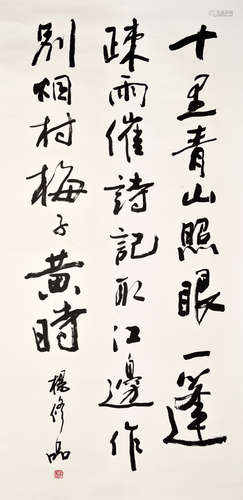 十里青山照眼一蓬
疎雨催詩記取江邊作
別烟村梅子黄時
楊修品